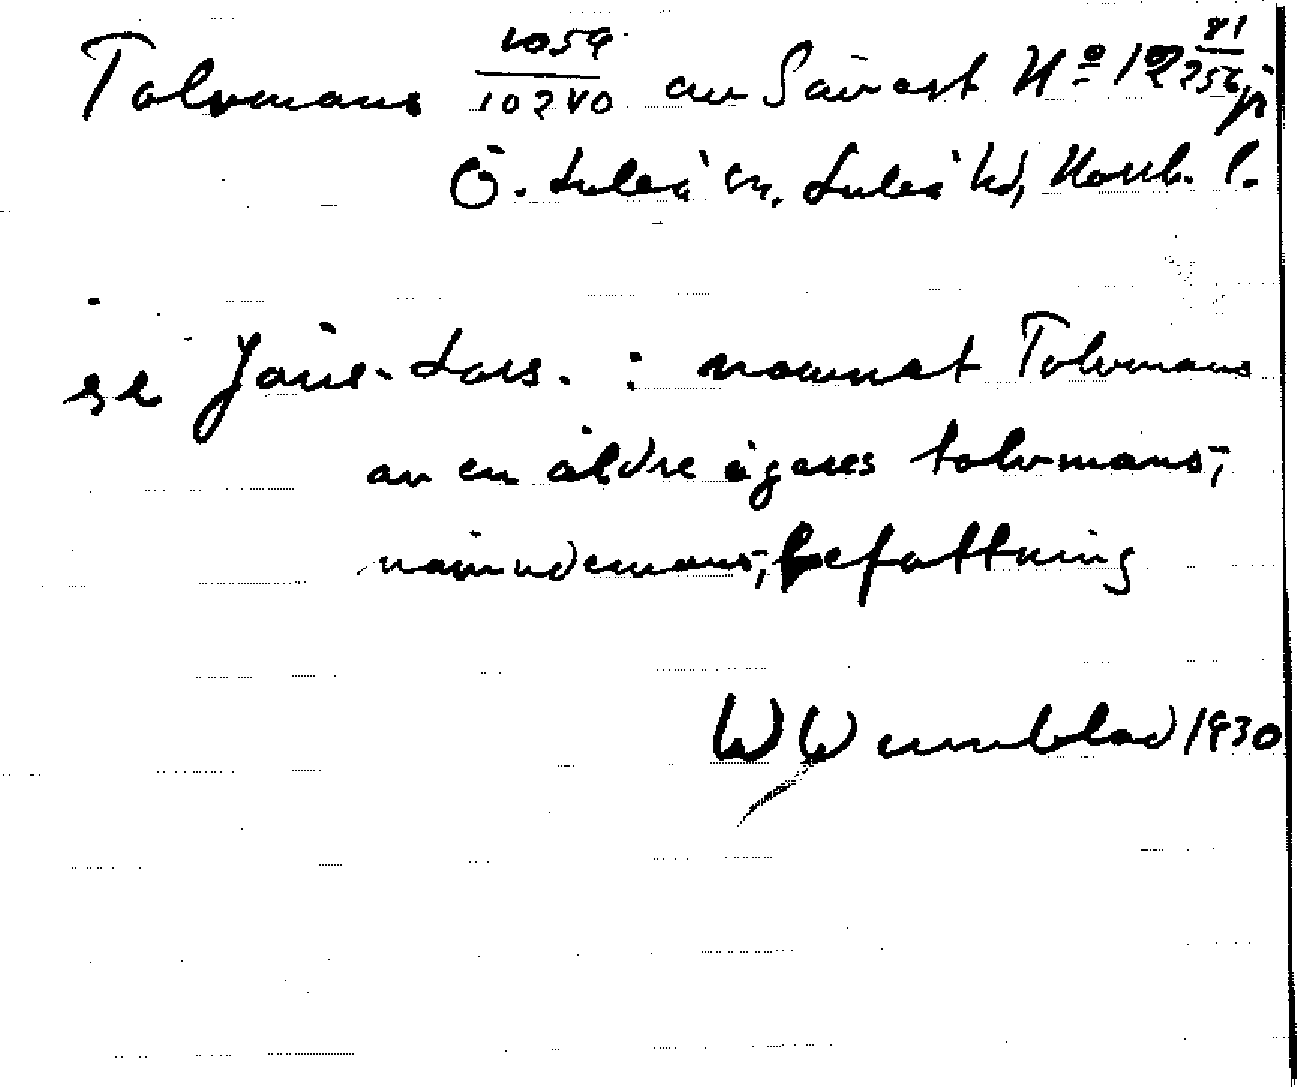 Tolvmans 1059/10240 av Sävast No 12 81/256 j
Ö. Luleå sn, Luleå td, Norrb. l.
se Jöns-Lars. : namnet Tolvmans
av en äldre ägares tolvmans-,
nämndemans-, befattning
W Wennblad 1930